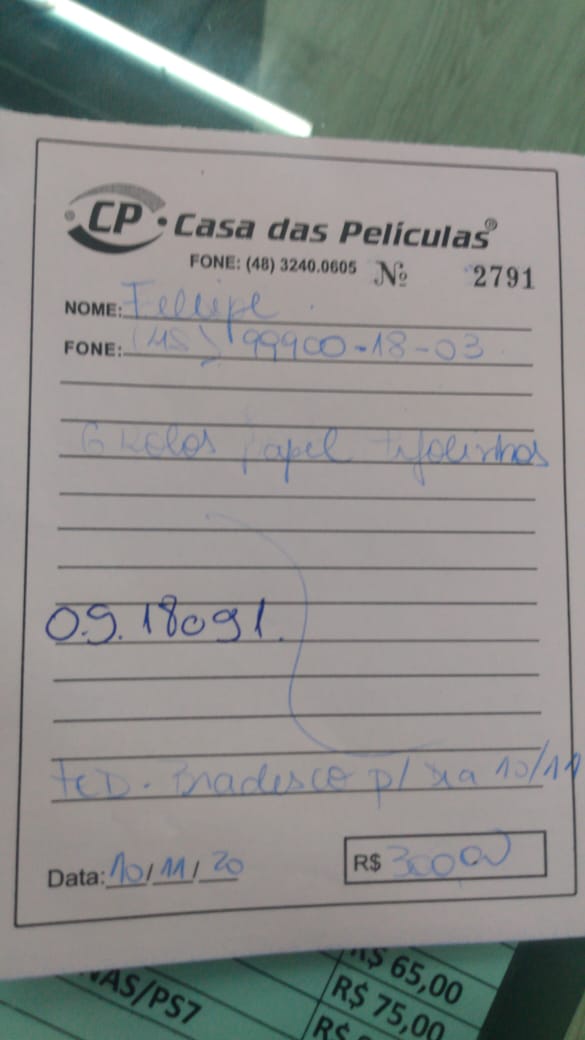 CP Casa das Películas®
FONE: (48) 3240.0605 Nº 2791
NOME: Fellipe
FONE: (48) 99900-18-03
6 Rolos papel Tijolinhos
09.18091.
TED. Bradesco p/ dia 10/11
Data: 10/11/20 R$ 300,00
R$ 65,00
NAS/PS7 R$ 75,00
R$